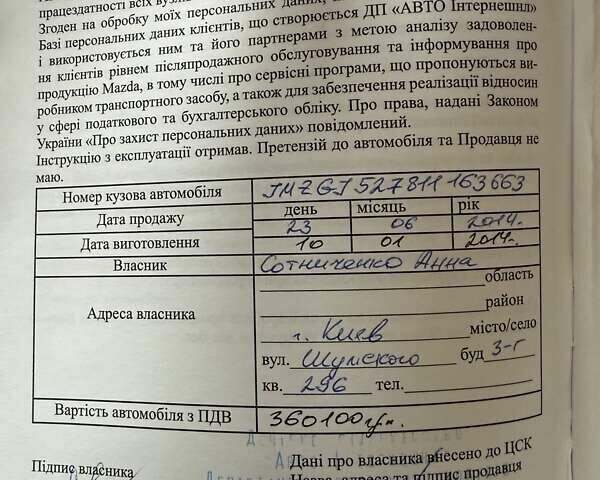 працездатності всіх вузлів
Згоден на обробку моїх персональних даних,
Базі персональних даних клієнтів, що створюється ДП «АВТО Інтернешнл»
і використовується ним та його партнерами з метою аналізу задоволен-
ня клієнтів рівнем післяпродажного обслуговування та інформування про
продукцію Mazda, в тому числі про сервісні програми, що пропонуються ви-
робником транспортного засобу, а також для забезпечення реалізації відносин
у сфері податкового та бухгалтерського обліку. Про права, надані Законом
України «Про захист персональних даних» повідомлений.
Інструкцію з експлуатації отримав. Претензій до автомобіля та Продавця не
маю.
Номер кузова автомобіля JMZGJ527811163663
Дата продажу день місяць рік
23 06 2014.
Дата виготовлення 10 01 2014.
Власник Сотниченко Анна
область
район
Адреса власника
г. Киев місто/село
вул. Шумского буд 3-г
кв. 296 тел.
Вартість автомобіля з ПДВ 360100грн.
Підпис власника
Дані про власника внесено до ЦСК
Назва, адреса та підпис продавця